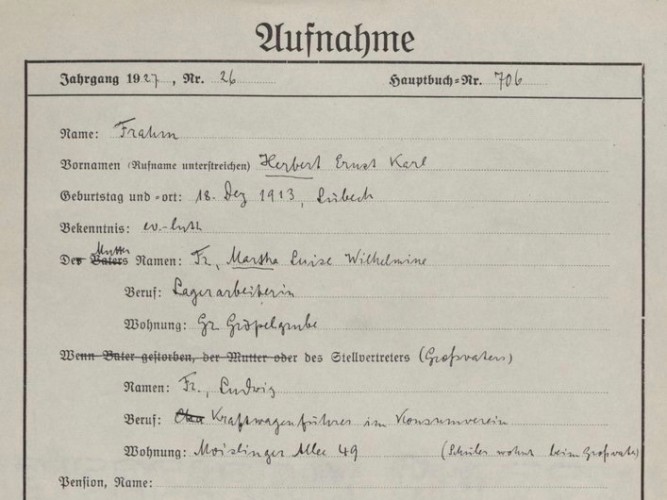 Aufnahme
Jahrgang 1927, Nr. 26 Hauptbuch-Nr. 706
Name: Frahm
Vornamen (Rufname unterstreichen) Herbert Ernst Karl
Geburtstag und -ort: 18. Dez 1913, Lübeck
Bekenntnis: ev.-luth
Der Vaters Mutter Namen: Fr., Martha Luise Wilhelmine
Beruf: Lagerarbeiterin
Wohnung: Gr. Gröpelgrube
Wenn Vater gestorben, der Mutter oder des Stellvertreters (Großvaters)
Namen: Fr., Ludwig
Beruf: Kraftwagenführer im Konsumverein
Wohnung: Moislinger Allee 49 (Schüler wohnt beim Großvater)
Pension, Name: